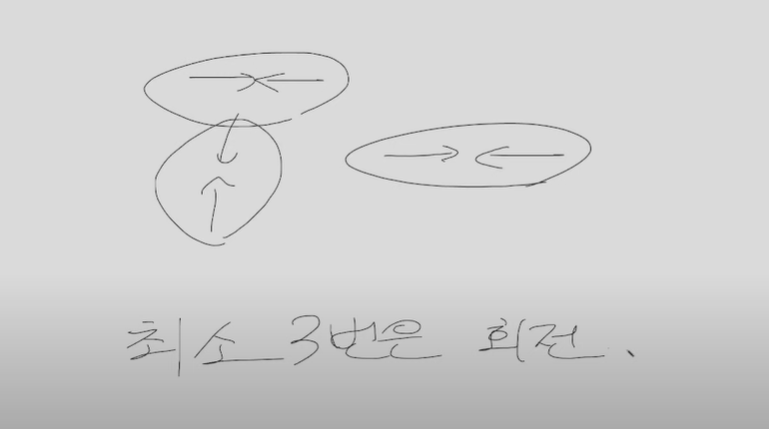 최소 3번은 회전.